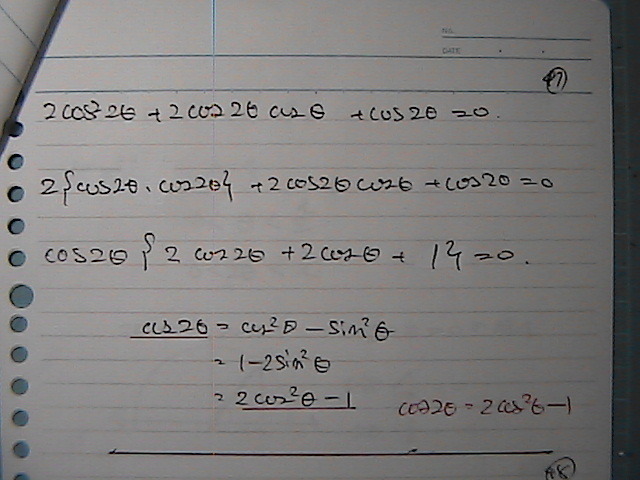 NO.
DATE
47
2cos²2θ + 2cos2θ cosθ + cos2θ = 0.
2{cos2θ . cos2θ} + 2cos2θ cosθ + cos2θ = 0
cos2θ { 2 cos2θ + 2cosθ + 1} = 0.
cos2θ = cos²θ - sin²θ
= 1 - 2sin²θ
= 2cos²θ - 1 cos2θ = 2cos²θ - 1
48